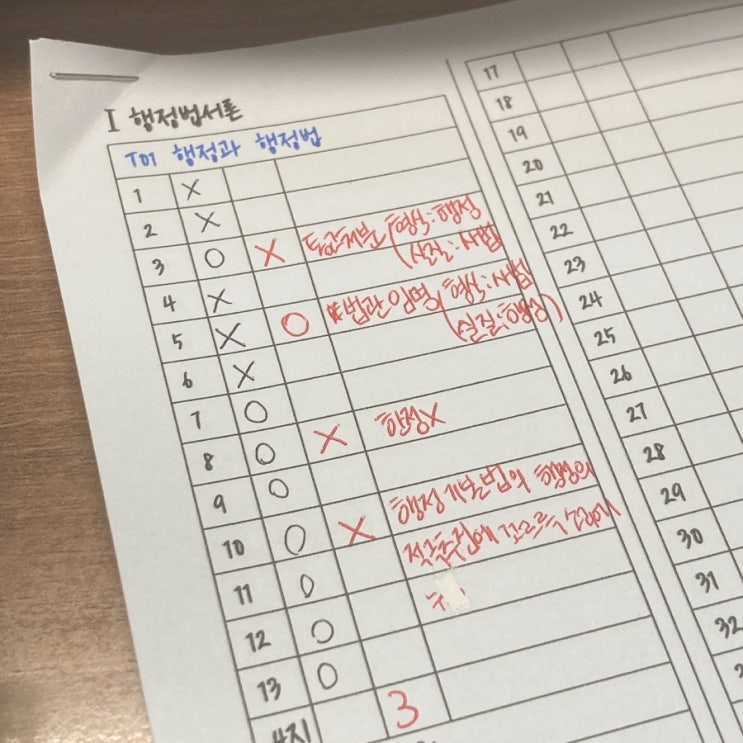 I 행정법서론
T01 행정과 행정법
1 X
2 X
3 O X 통고처분 (형식:행정
실질:사법
4 X
5 X O *법관 임명 (형식:사법
실질:행정)
6 X
7 O
8 O X 한정X
9 O
10 O X 행정기본법의 행정의
11 O
12 O
13 O
4지 3
17
18
19
20
21
22
23
24
25
26
27
28
29
30
31
32